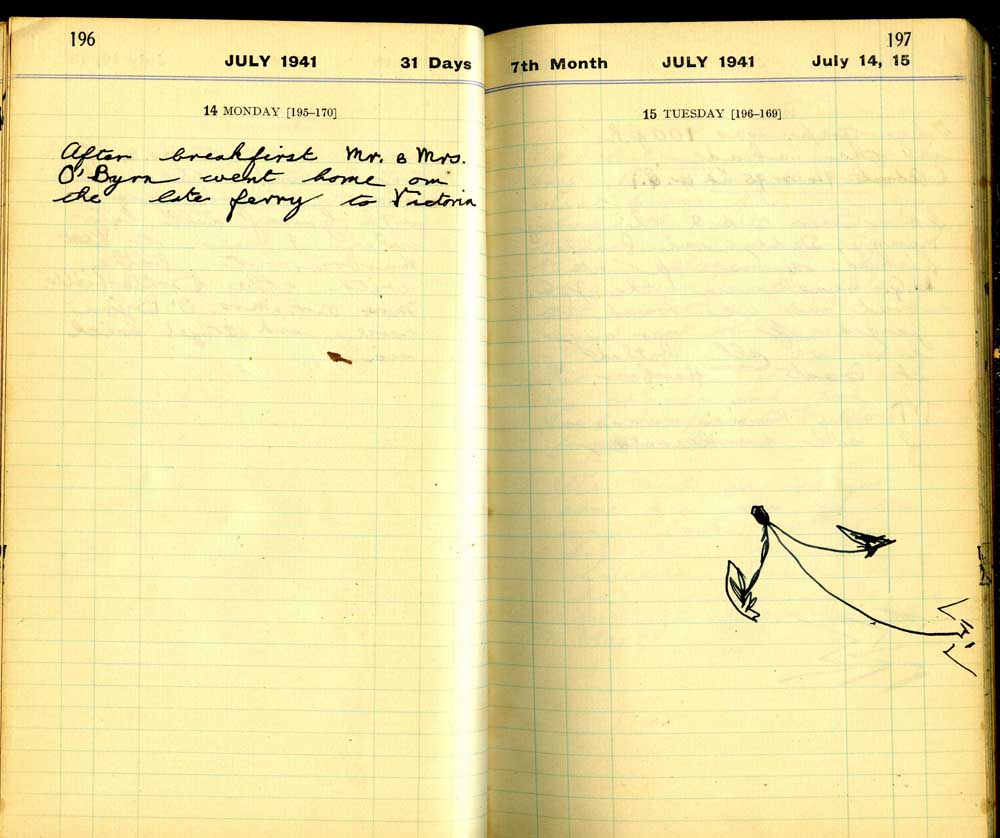 196
JULY 1941 31 Days
14 MONDAY [195–170]
After breakfirst Mr. & Mrs.
O'Byrn went home on
the late ferry to Victoria
197
7th Month JULY 1941 July 14, 15
15 TUESDAY [196–169]